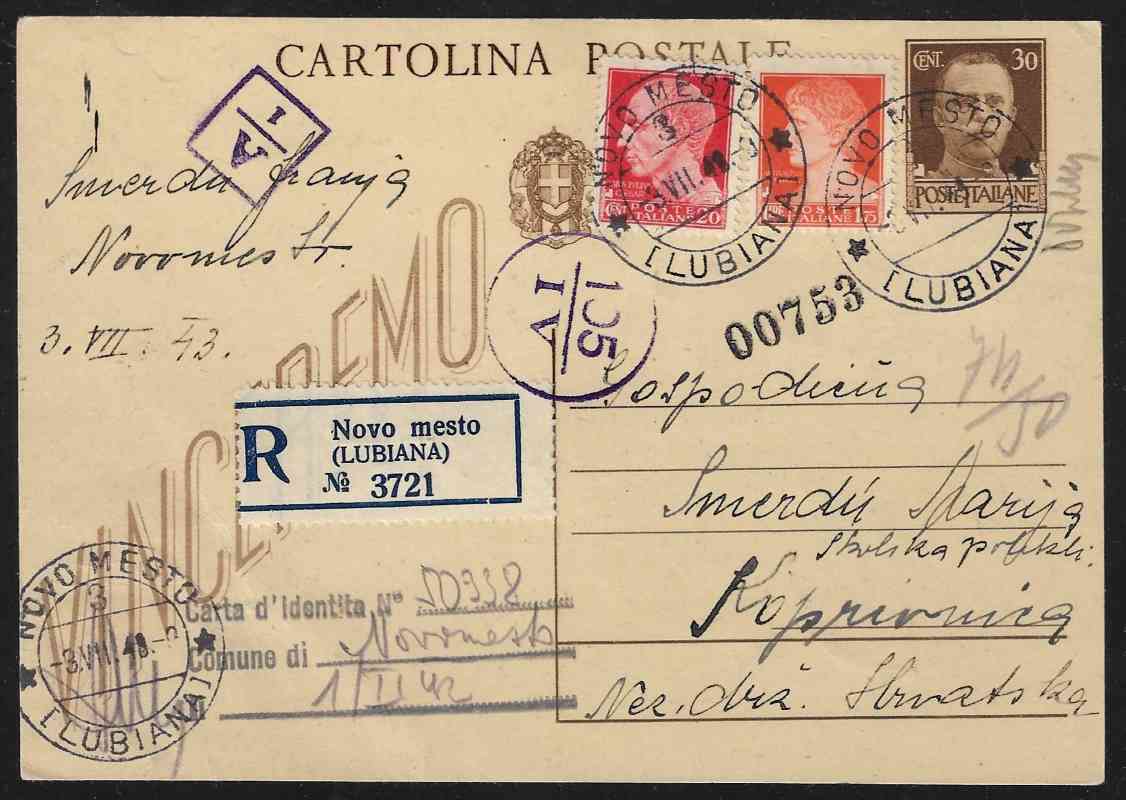 CARTOLINA POSTALE
CENT. 30
POSTE ITALIANE
POSTE
CENT. ITALIANE 20
POSTE
ITALIANE 1,75
NOVO MESTO
3
3.VII.43
(LUBIANA)
NOVO MESTO
(LUBIANA)
A
I
Smerdù
Novomesto
3. VII. 43.
105
IV
00753
VINCEREMO
R
Novo mesto
(LUBIANA)
№ 3721
Gospodična
Smerdù Marija
Školska
Koprivnica
Nez. drž. Hrvatska
NOVO MESTO
3
-3.VII.43.-
(LUBIANA)
Carta d'Identita N° 50338
Comune di Novomesto
1/II 42